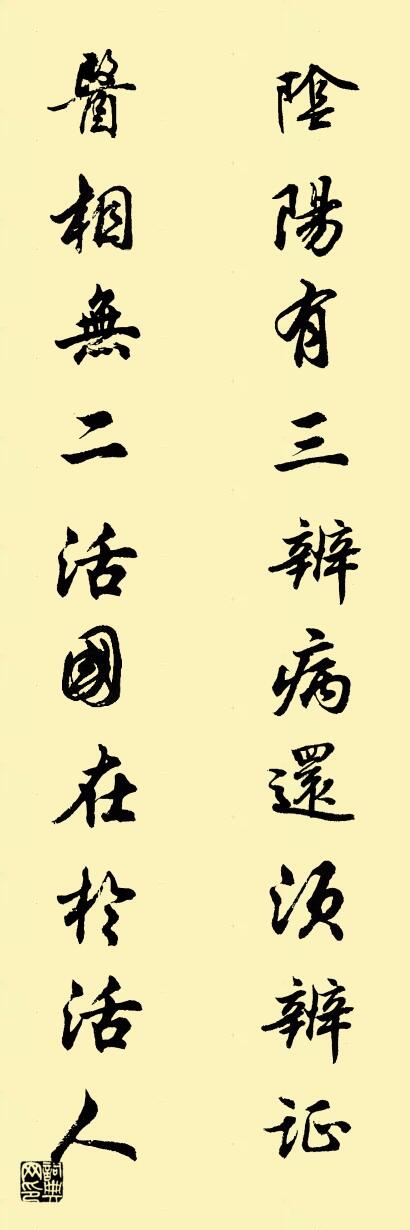 陰陽有三辨病還須辨证
醫相無二活國在於活人
詞典网印